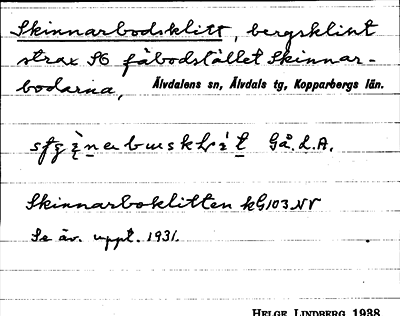 Skinnarbodsklitt, bergsklint
strax SO fäbodstället Skinnar-
bodarna, Älvdalens sn, Älvdals tg, Kopparbergs län.
Gå. L.A.
Skinnarboklitten kG103NV
Se äv. uppt. 1931.
HELGE LINDBERG 1938